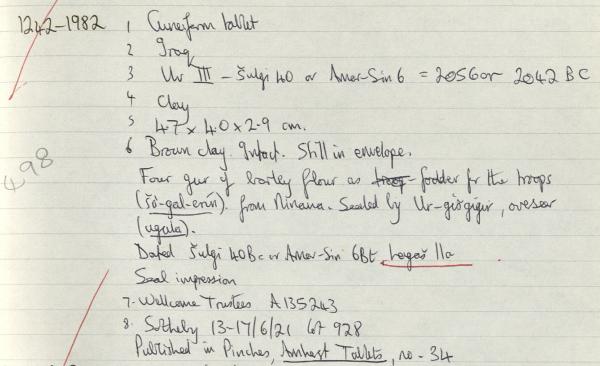 1242-1982 1 Cuneiform tablet
2 Iraq
3 Ur III - Šulgi 40 or Amar-Sin 6 = 2056 or 2042 BC
4 Clay
5 4.7 x 4.0 x 2.9 cm.
6 Brown clay. Intact. Still in envelope.
498
Four gur of barley flour as troop fodder for the troops
(šà-gal-erin). from Ninana. Sealed by Ur-gišgigir, overseer
(ugula).
Dated Šulgi 40Bc or Amar-Sin 6Bt Lagaš IIa
Seal impression
7. Wellcome Trustees A135243
8. Sotheby 13-17/6/21 lot 928
Published in Pinches, Amherst Tablets, no. 34